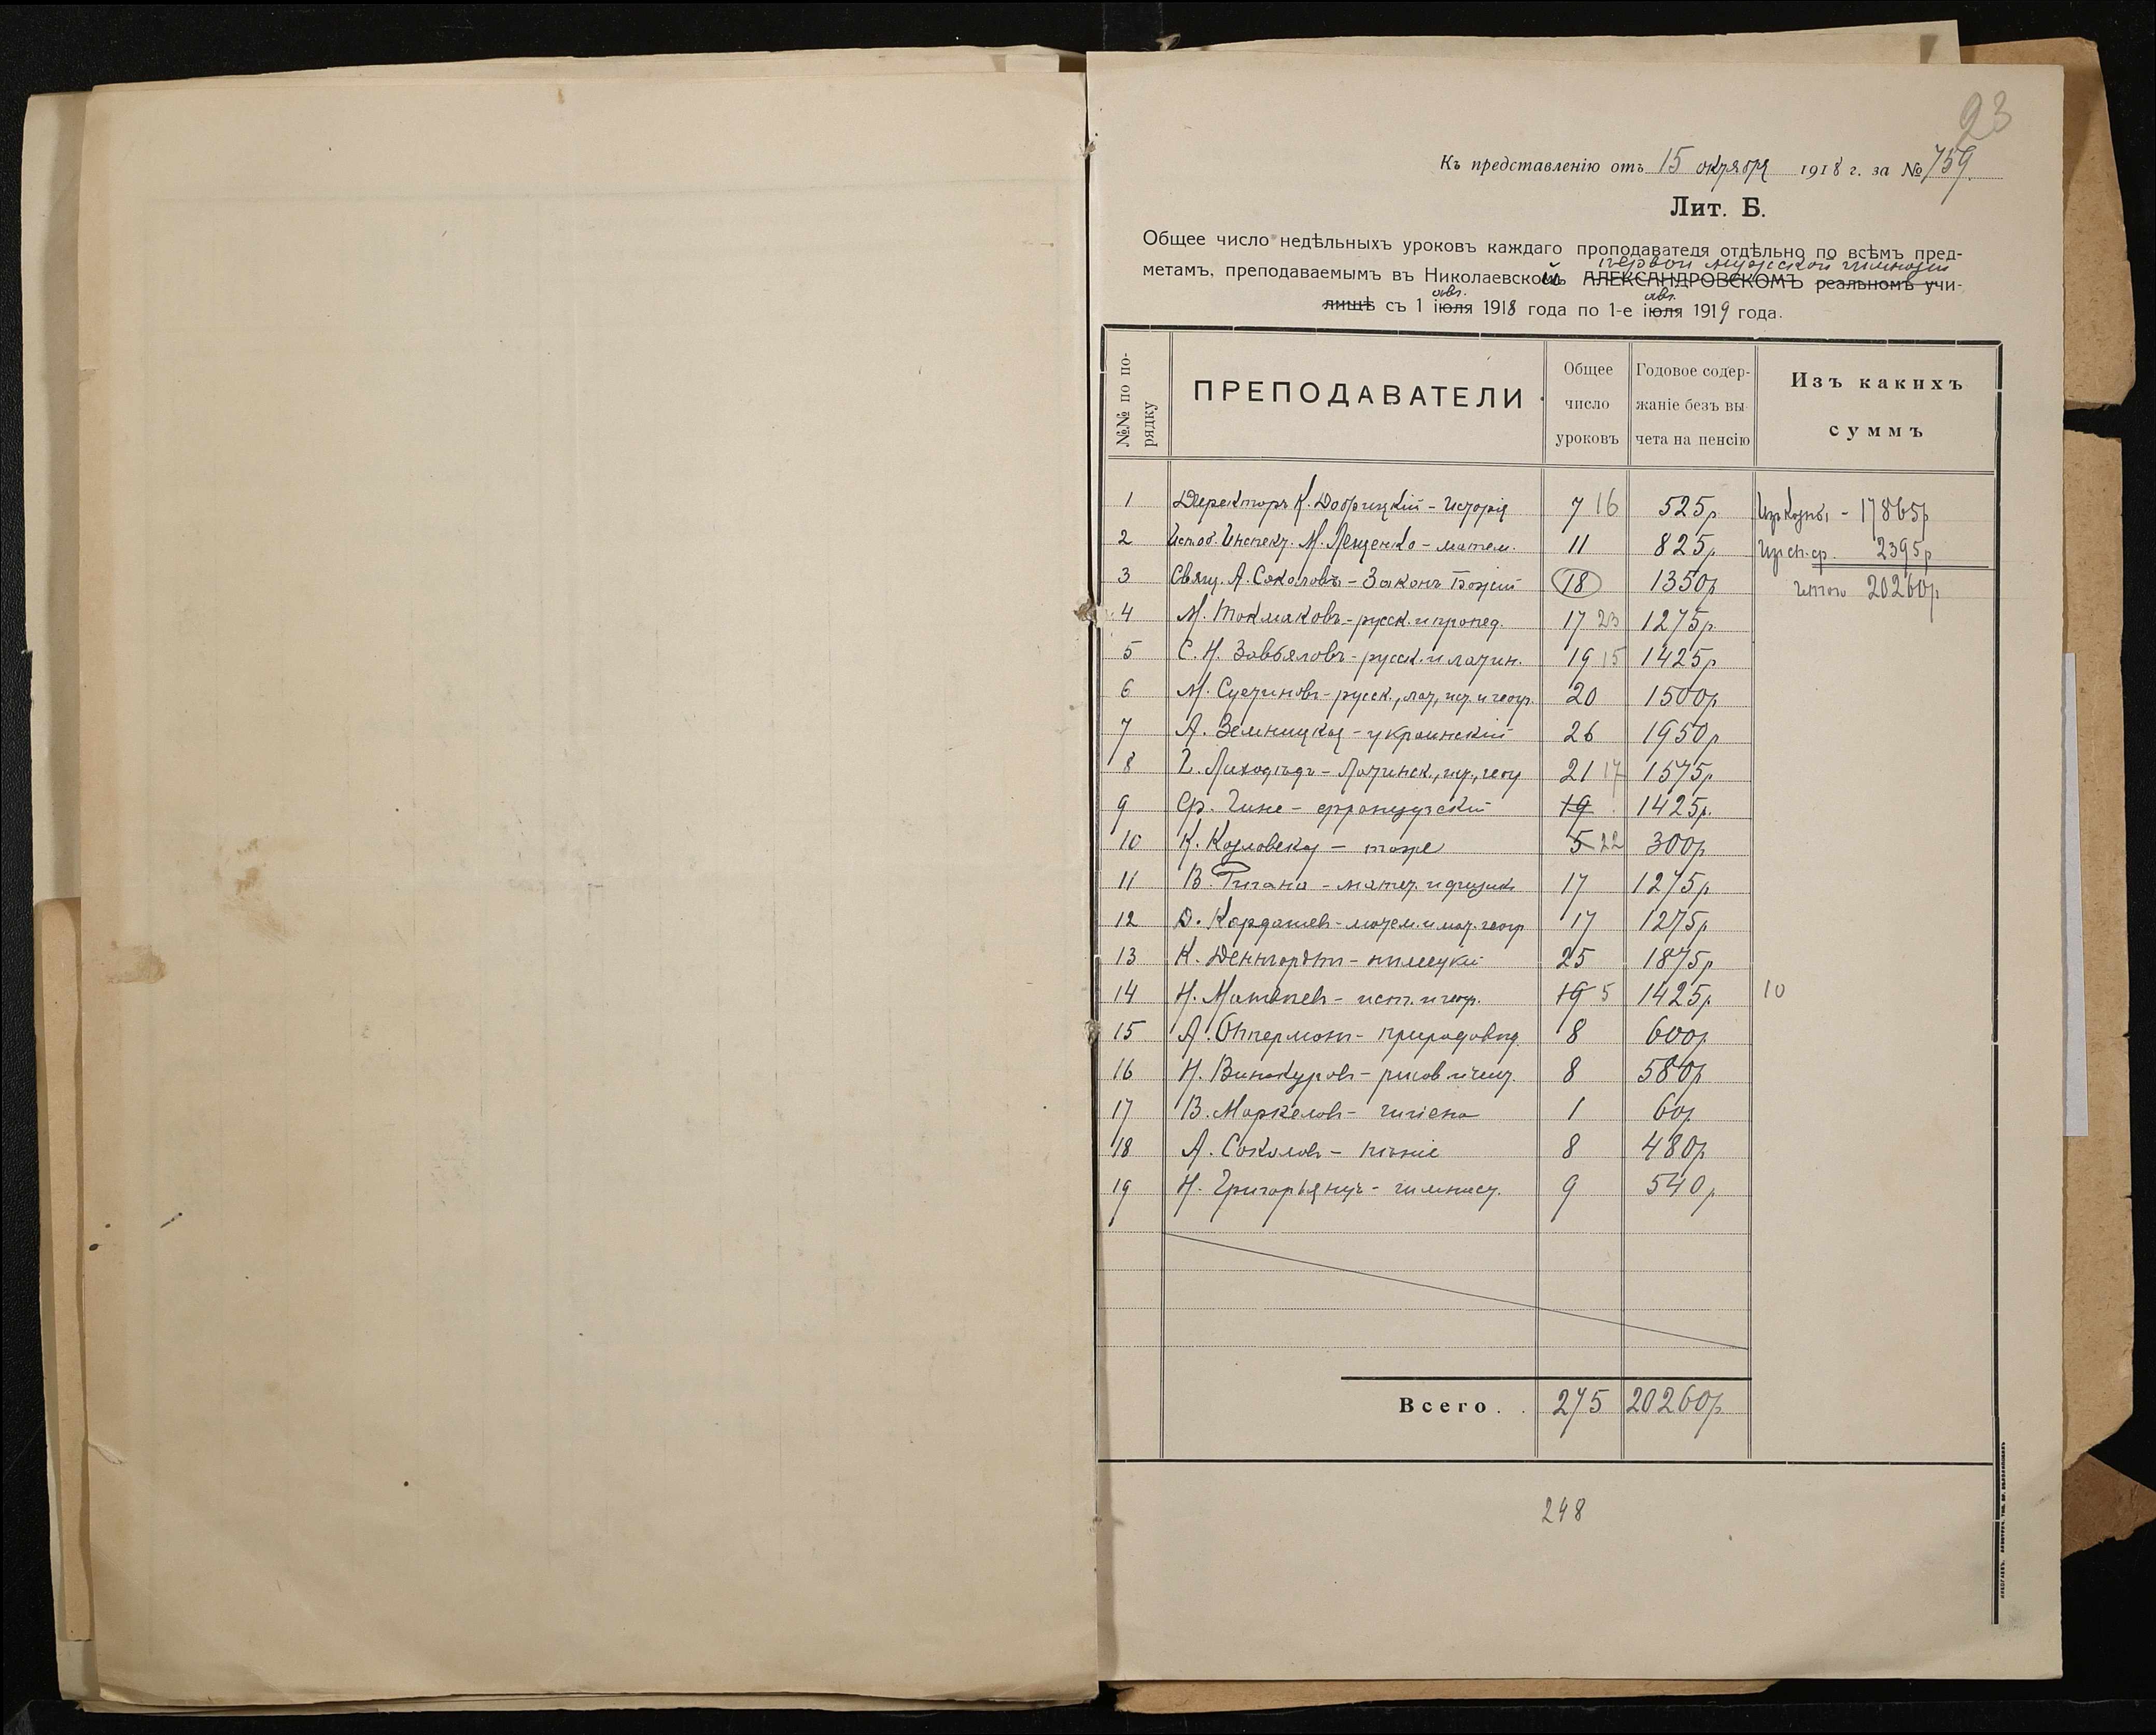 93
Къ представленію отъ 15 октября 1918 г. за № 759.
Лит. Б.
Общее число недѣльныхъ уроковъ каждаго проподавателя отдѣльно по всѣмъ пред-
первой мужской гимназіи
метамъ, преподаваемымъ въ Николаевской АЛЕКСАНДРОВСКОМЪ реальномъ учи-
авг. авг.
лищѣ съ 1 іюля 1918 года по 1-е іюля 1919 года.
№№ по по-
рядку
ПРЕПОДАВАТЕЛИ
Общее
число
уроковъ
Годовое содер-
жаніе безъ вы-
чета на пенсію
Изъ какихъ
суммъ
1 Директоръ К. Добрицкій - Исторія 7 16 525р Изъ казны - 17865р
2 Исп. об. Инспект. М. Лещенко - матем. 11 825р Изъ сп. ср. 2395р
3 Свящ. А. Соколовъ - Законъ Божій 18 1350р Итого 20260р
4 М. Токмаковъ - русск. и пропед. 17 23 1275р
5 С. Н. Завьяловъ - русск. и латин. 19 15 1425р
6 М. - русск., лат, ист. и геогр. 20 1500р
7 А. Земницкая - украинскій 26 1950р
8 Лиходѣдъ - Латинск., ист., геогр 21 17 1575р
9 Гине - французскій 19 1425р.
10 К. Козловская - тоже 5 22 300р
11 В. - матем. и физик 17 1275р
12 Д. Кардашев - матем. и мат. геогр 17 1275р
13 К. - нѣмецкій 25 1875р
14 Н. Матвѣев - ист. и геогр. 19 5 1425р 10
15 А. - природовѣд. 8 600р
16 Н. Винокуров - рисов и чист. 8 580р
17 В. Маркелов - гигіена 1 60р
18 А. Соколов - пѣніе 8 480р
19 Н. Григорьянцъ - гимнаст. 9 540р
Всего . . 275 20260р
248